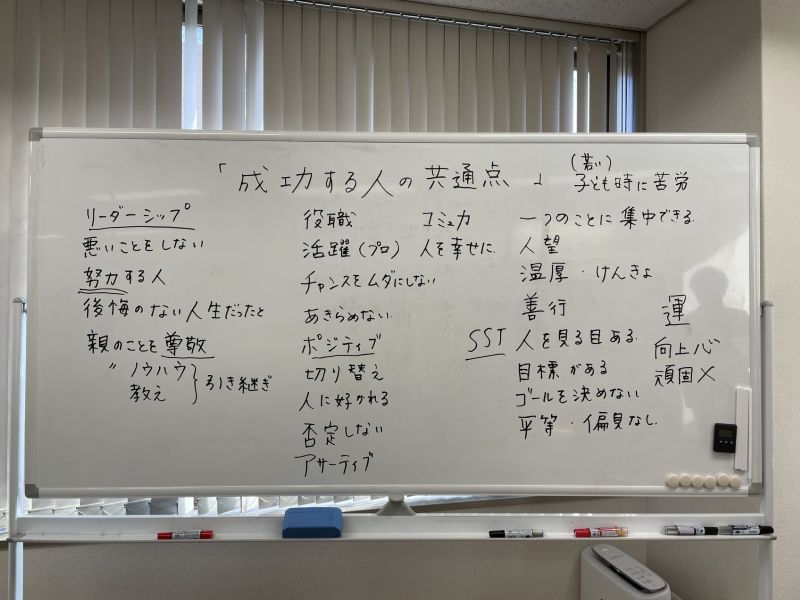 「成功する人の共通点」
(若い)
子ども時に苦労
リーダーシップ
悪いことをしない
努力する人
後悔のない人生だったと
親のことを尊敬
〃 ノウハウ
教え
引き継ぎ
役職
活躍(プロ)
チャンスをムダにしない
あきらめない
ポジティブ
切り替え
人に好かれる
否定しない
アサーティブ
コミュ力
人を幸せに
一つのことに集中できる
人望
温厚・けんきょ
善行
SST 人を見る目ある
目標がある
ゴールを決めない
平等・偏見なし
運
向上心
頑固×